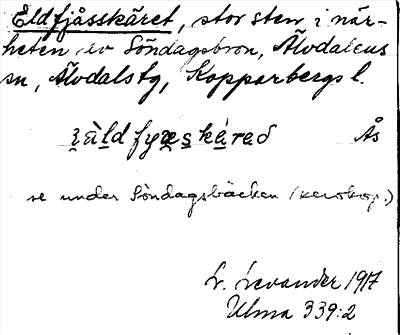 Eldfjåsskäret, stor sten i när-
heten av Söndagsbron, Älvdalens
sn, Älvdals tg, Kopparbergs l.
Ås
se under Söndagsbäcken
L. Levander 1917
Ulma 339:2